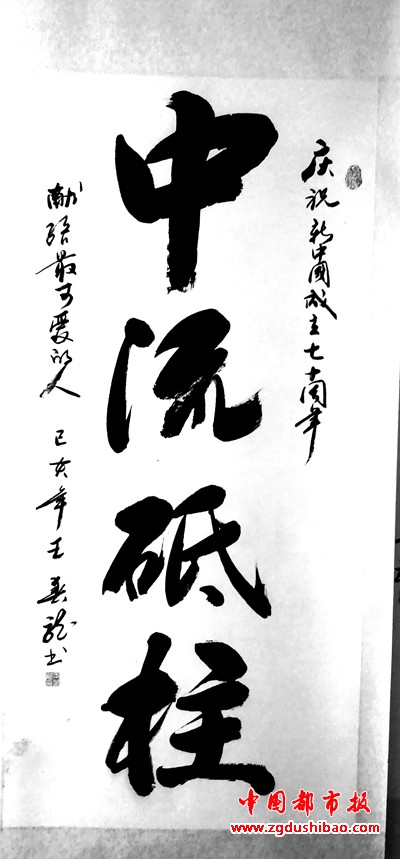 庆祝新中国成立七十周年
中流砥柱
献给最可爱的人
己亥年王春龙书
中国都市报
www.zgdushibao.com